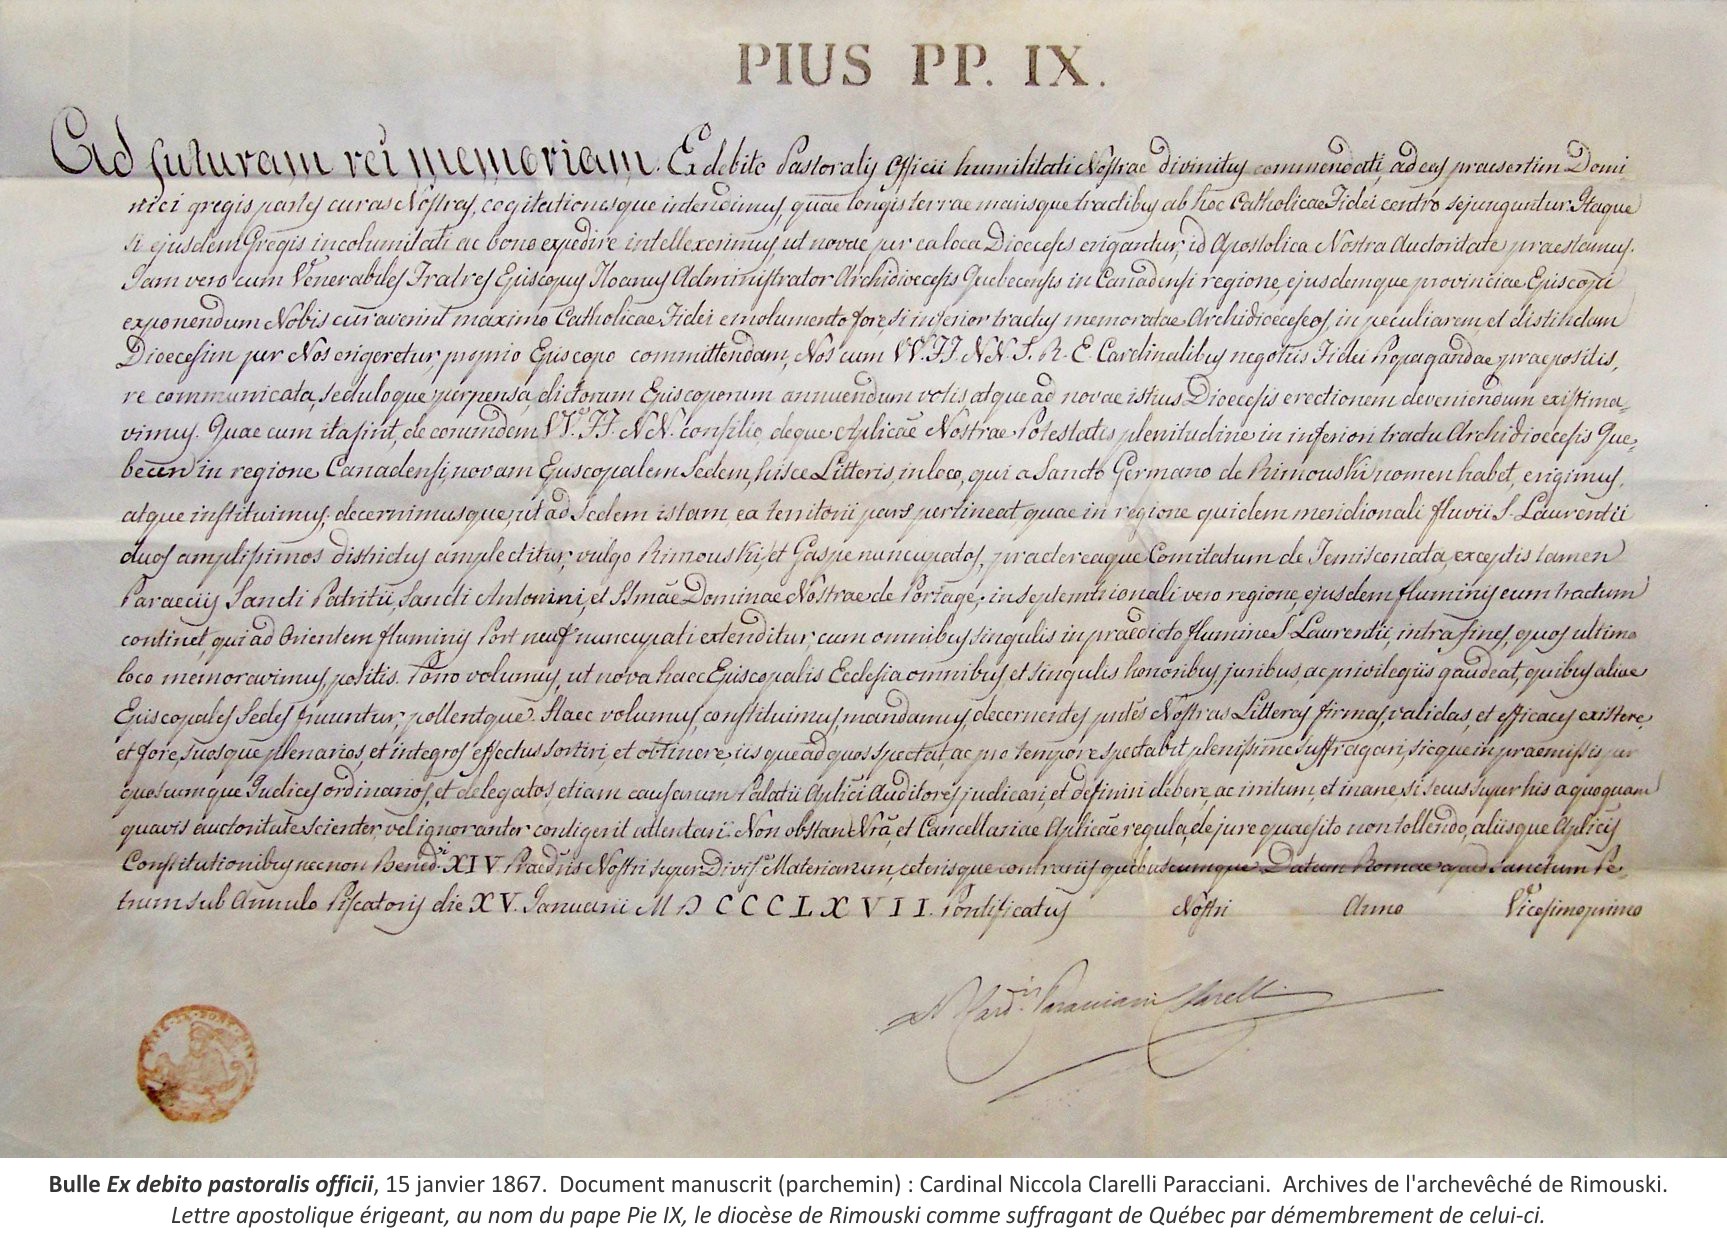 PIUS PP. IX.
Ad futuram rei memoriam. Ex debito Pastoralis Officii humilitati Nostrae divinitus commendati, ad eas praesertim Domi
nici gregis partes curas Nostras, cogitationesque intendimus, quae longis terrae marisque tractibus ab hoc Catholicae Fidei centro sejunguntur. Itaque
si ejusdem Gregis incolumitati ac bono expedire intellexerimus, ut novae per ea loca Dioeceses erigantur, id Apostolica Nostra Auctoritate praestamus.
Jam vero cum Venerabiles Fratres Episcopus Tloanus Administrator Archidioecesis Quebecensis in Canadensi regione, ejusdemque provinciae Episcopi
exponendum Nobis curaverint maximo Catholicae Fidei emolumento fore, si inferior tractus memoratae Archidioeceseos, in peculiarem, et distinctam
Dioecesim per Nos erigeretur, proprio Episcopo committendam, Nos cum VV. FF. NN. S. R. E. Cardinalibus negotiis Fidei Propagandae praepositis,
re communicata, seduloque perpensa, dictorum Episcoporum annuendum votis atque ad novae istius Dioecesis erectionem deveniendum existima-
vimus. Quae cum ita sint, de eorumdem VV. FF. NN. consilio, deque Aplicae Nostrae Potestatis plenitudine in inferiori tractu Archidioecesis Que-
becen in regione Canadensi, novam Episcopalem Sedem, hisce Litteris, in loco, qui a Sancto Germano de Rimouski nomen habet, erigimus,
atque instituimus, decernimusque, ut ad Sedem istam, ea territorii pars pertineat, quae in regione quidem meridionali fluvii S. Laurentii
duos amplissimos districtus amplectitur, vulgo Rimouski, et Gaspe nuncupatos, praetereaque Comitatum de Temisconata, exceptis tamen
Paraeciis Sancti Patritii, Sancti Antonini, et Ssmae Dominae Nostrae de Portage; in septemtrionali vero regione, ejusdem fluminis eum tractum
continet, qui ad Orientem fluminis Port neuf nuncupati extenditur, cum omnibus singulis in praedicto flumine S. Laurentii, intra fines, quos ultimo
loco memoravimus, positis. Porro volumus, ut nova haec Episcopalis Ecclesia omnibus et singulis honoribus, juribus, ac privilegiis gaudeat, quibus aliae
Episcopales Sedes fruuntur, pollentque. Haec volumus, constituimus, mandamus, decernentes pntes Nostras Litteras firmas, validas, et efficaces existere,
et fore, suosque plenarios, et integros effectus sortiri, et obtinere, iisque ad quos spectat, ac pro tempore spectabit plenissime suffragari, sicque in praemissis per
quoscumque Judices ordinarios, et delegatos, etiam causarum Palatii Aplici Auditores judicari, et definiri debere, ac irritum, et inane, si secus super his a quoquam
quavis auctoritate scienter, vel ignoranter contigerit attentari. Non obstan Nra, et Cancellariae Aplicae regula, de jure quaesito non tollendo, aliisque Aplicis
Constitutionibus necnon Bened.i XIV. Praedris Nostri super Divise Materiarum, ceterisque contrariis quibuscumque. Datum Romae apud Sanctum Pe-
trum sub Annulo Piscatoris die XV. Januarii MDCCCLXVII. Pontificatus Nostri Anno Vicesimoprimo
N Card.is Paracciani Clarelli
Bulle Ex debito pastoralis officii, 15 janvier 1867. Document manuscrit (parchemin) : Cardinal Niccola Clarelli Paracciani. Archives de l'archevêché de Rimouski.
Lettre apostolique érigeant, au nom du pape Pie IX, le diocèse de Rimouski comme suffragant de Québec par démembrement de celui-ci.